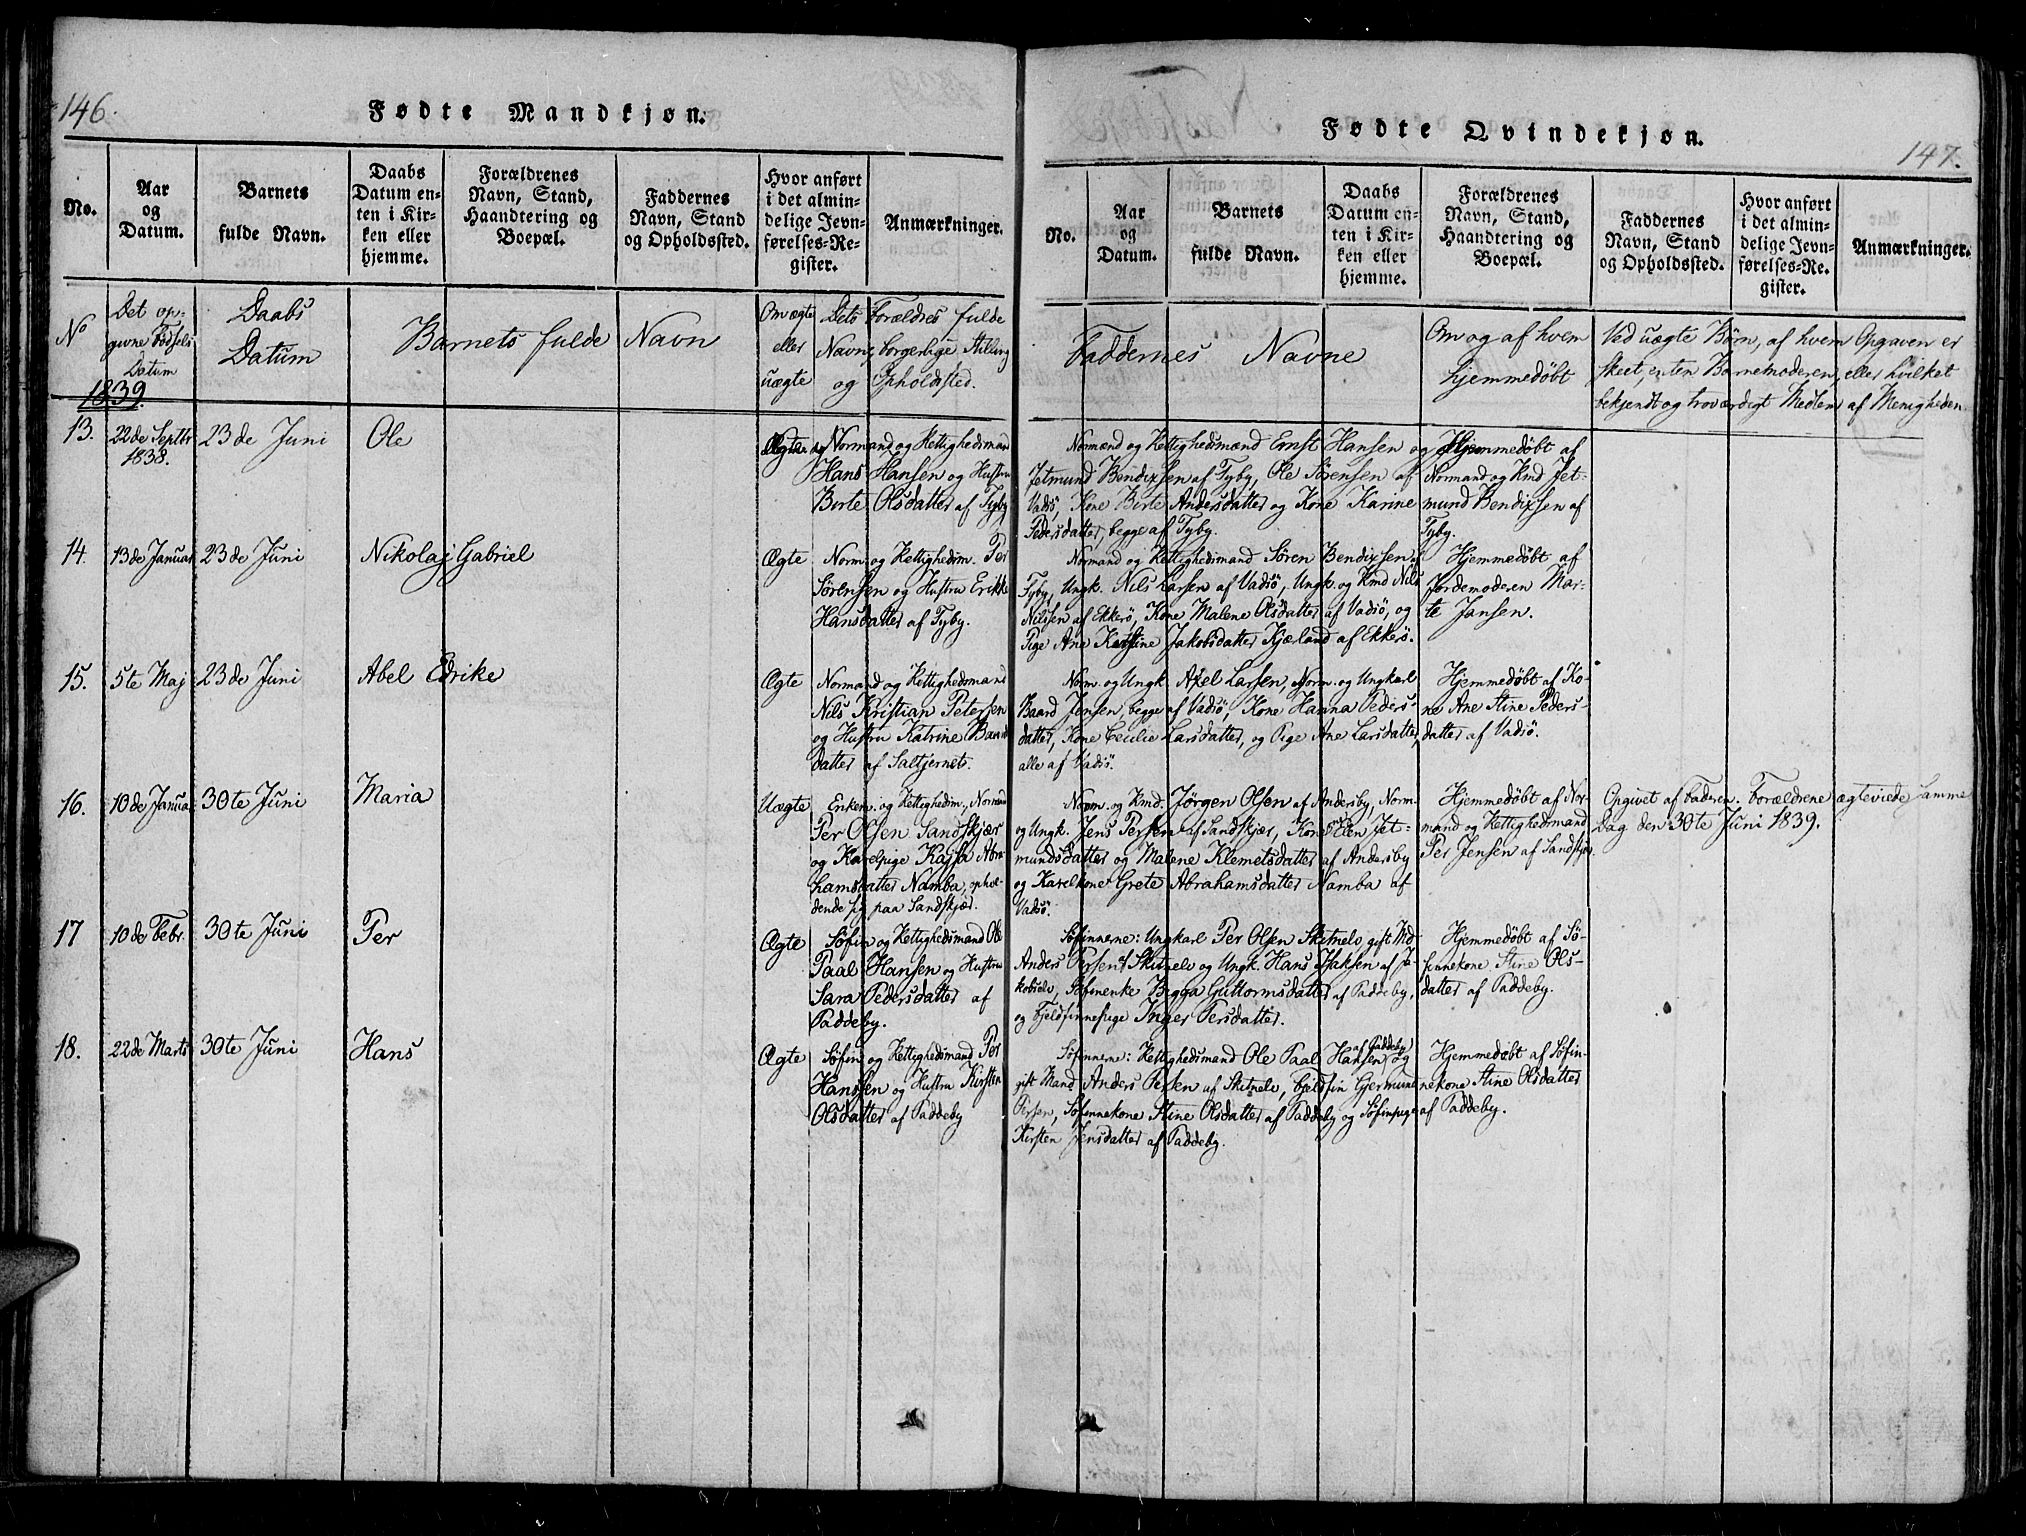 146.
Fødte Mandkjøn.
No.
Aar
og
Datum.
Barnets
fulde Navn.
Daabs
Datum en-
ten i Kir-
ken eller
hjemme.
Forældrenes
Navn, Stand,
Haandtering og
Boepæl.
Faddernes
Navn, Stand
og Opholdssted.
Hvor anført
i det almin-
delige Jevn-
førelses-Re-
gister.
Anmærkninger.
No
Det op-
givne Fødsels
Datum
Daabs
Datum
Barnets fulde Navn
Om ægte
eller
uægte
Dets Forældres fulde
Navn, borgerlige Stilling
og Opholdsted.
1839.
13.
22de Septbr
1838.
23de Juni
Ole
Ægte
Normand og Rettighedsmand
Hans Hansen og Hustru
Berte Olsdatter af Tyby
14.
13de Januar
23de Juni
Nikolaj Gabriel
Ægte
Norm. og Rettighedsm. Per
Sörensen og Hustru Erikke
Hansdatter af Tyby.
15.
5te Maj
23de Juni
Abel Edrike
Ægte
Normand og Rettighedsmand
Nils Kristian Petersen
og Hustru Katrine Baards
datter af Saltjernets.
16.
10de Januar
30te Juni
Maria
Uægte
Enkem. og Rettighedsm. Normand
Per Olsen Sandskjær
og Kavelpige Kajsa Abra-
hamsdatter Namba, ophol-
dende sig paa Sandskjær.
17
10de Febr.
30te Juni
Per
Ægte
Söfin og Rettighedsmand Ole
Paal Hansen og Hustru
Sara Pedersdatter af
Paddeby.
18.
22de Marts
30te Juni
Hans
Ægte
Söfin og Rettighedsmand Per
Hanssen og Hustru Kirsten
Olsdatter af Paddeby
147.
Fødte Qvindekjøn.
No.
Aar
og
Datum.
Barnets
fulde Navn.
Daabs
Datum en-
ten i Kir-
ken eller
hjemme.
Forældrenes
Navn, Stand,
Haandtering og
Boepæl.
Faddernes
Navn, Stand
og Opholdssted.
Hvor anført
i det almin-
delige Jevn-
førelses-Re-
gister.
Anmærkninger.
Faddernes Navne
Om og af hvem
hjemmedøbt
Ved uægte Børn, af hvem Opgaven er
skeet, enten Barnemoderen, eller hvilket
bekjendt og troværdigt Medlem af Menigheden
Normænd og Rettighedsmænd Ernst Hansen og
Jetmund Bendixsen af Tyby, Ole Sörensen af
Vadsö, Kone Berte Andersdatter og Kone Karine
Pedersdatter, begge af Tyby.
Hjemmedøbt af
Normand og Kmd Jet-
mund Bendixsen af
Tyby.
Normand og Rettighedsmand Sören Bendixsen af
Tyby, Ungk. Nils Larsen af Vadsö, Ungk. og Kmd Nils
Nilssen af Ekkerö, Kone Malene Olsdatter af Vadsö, og
Pige Ane Jakobsdatter Kjæland af Ekkerö.
Hjemmedøbt af
Jordemoderen Mar-
te Jansen.
Norm. og Ungk. Axel Larsen, Norm. og Ungkarl
Baard Jensen, begge af Vadsö, Kone Hanna Peders-
datter, Kone Cecilie Larsdatter, og Pige Ane Larsdatter,
alle af Vadsö.
Hjemmedøbt af Ko-
ne Ane Stine Peders-
datter af Vadsö.
Norm. og Kmd. Jörgen Olsen af Andersby, Norm.
og Ungk. Jens Persen af Sandskjær, Kone Elen Jet-
mundsdatter og Malene Klemetsdatter af Andersby
og Kavelkone Grete Abrahamsdatter Namba af
Vadsö.
Hjemmedøbt af Nor-
mand og Rettighedsmand
Per Jensen af Sandskjær.
Opgivet af Faderen. Forældrene ægteviede samme
Dag den 30te Juni 1839.
Söfinnerne: Ungkarl Per Olsen Skitnelv, gift Md
Anders Persen af Skitnelv og Ungk. Hans Isaksen af Ja-
kobselv, Söfinenke Bigga Guttormsdatter af Paddeby,
og Fjeldfinnepige Inger Persdatter.
Hjemmedøbt af Sö-
finnekone Stine Ols-
datter af Paddeby.
Söfinnerne: Rettighedsmand Ole Paal Hansen (af Paddeby) og
gift Mand Anders Persen af Skitnelv, Fjeldfin
Persen, Söfinnekone Stine Olsdatter af Paddeby og Söfinpige
Kirsten Jensdatter af Paddeby.
Hjemmedøbt af Söfin-
nekone Stine Olsdatter
af Paddeby.